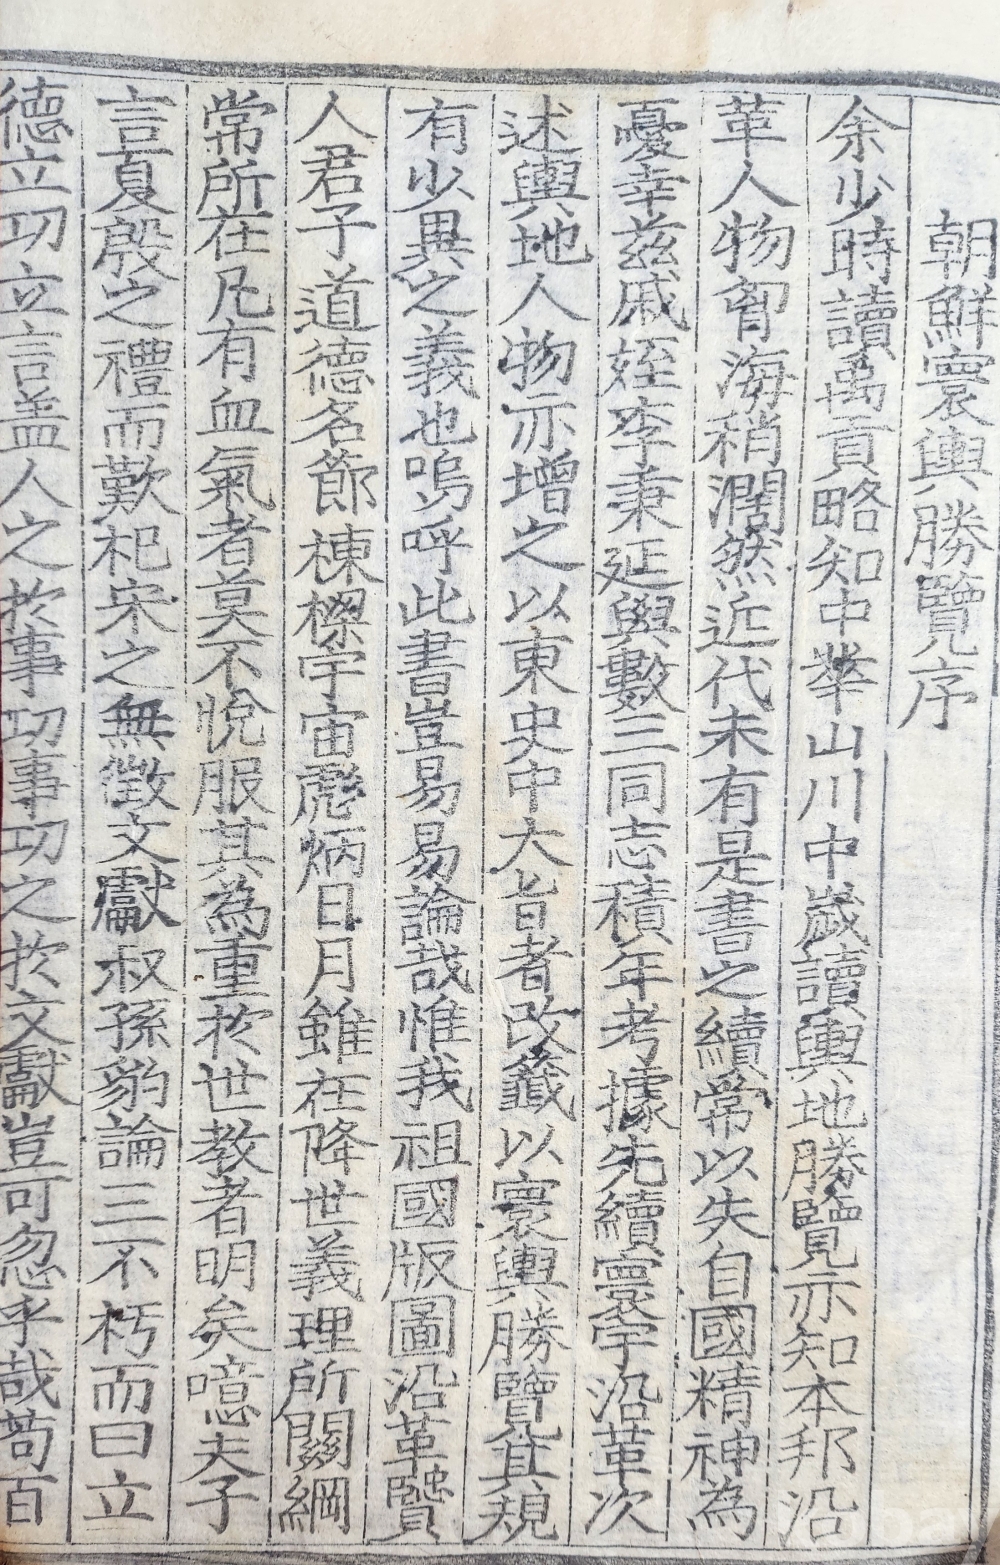 朝鮮寰輿勝覽序
余少時讀禹貢略知中華山川中歲讀輿地勝覽亦知本邦沿
革人物胷海稍濶然近代未有是書之續常以失自國精神為
憂幸玆戚姪李秉延與數三同志積年考據先續寰宇沿革次
述輿地人物亦增之以東史中大旨者改籤以寰輿勝覽其規
有少異之義也嗚呼此書豈易易論哉惟我祖國版圖沿革賢
人君子道德名節棟樑宇宙彪炳日月雖在降世義理所關綱
常所在凡有血氣者莫不悅服其為重於世教者明矣噫夫子
言夏殷之禮而歎杞宋之無徵文獻叔孫豹論三不朽而曰立
德立功立言盖人之於事功事功之於文獻豈可忽乎哉苟百